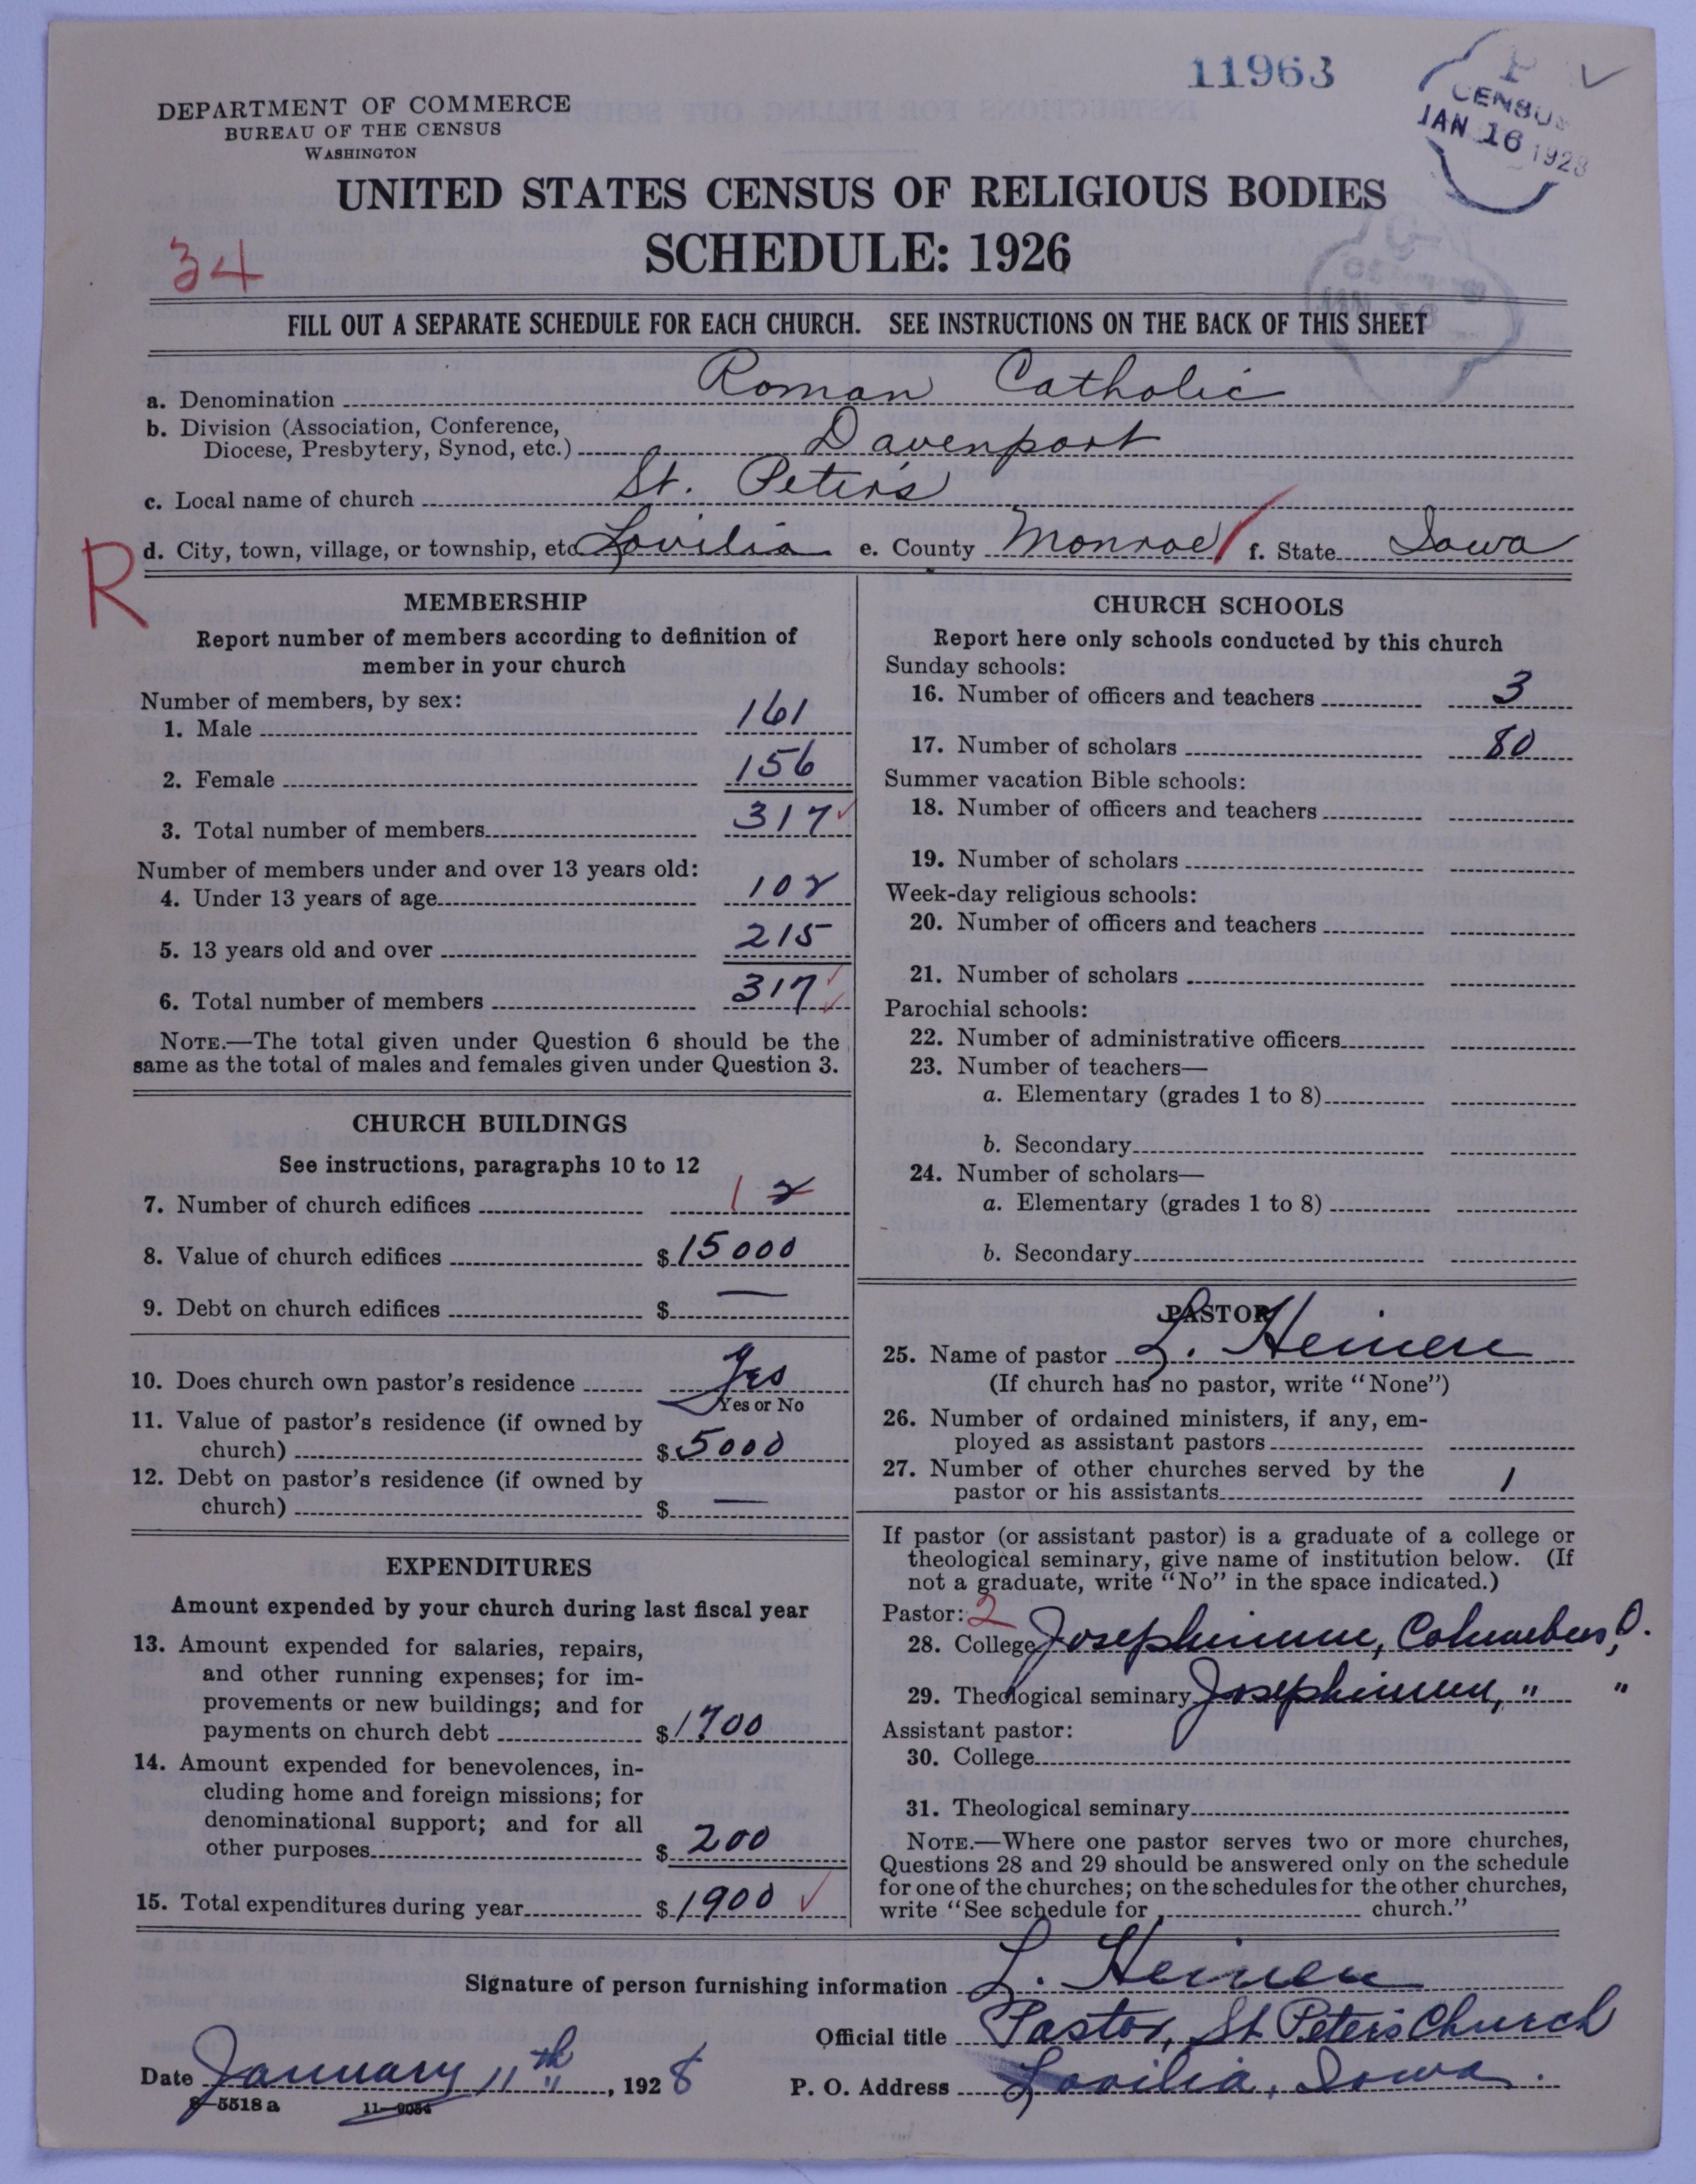 11963
CENSUS
JAN 16 1928
DEPARTMENT OF COMMERCE
BUREAU OF THE CENSUS
WASHINGTON
UNITED STATES CENSUS OF RELIGIOUS BODIES
SCHEDULE: 1926
34
FILL OUT A SEPARATE SCHEDULE FOR EACH CHURCH. SEE INSTRUCTIONS ON THE BACK OF THIS SHEET
a. Denomination Roman Catholic
b. Division (Association, Conference,
Diocese, Presbytery, Synod, etc.) Davenport
c. Local name of church St. Peter's
R
d. City, town, village, or township, etc Lovilia e. County Monroe f. State Iowa
MEMBERSHIP
Report number of members according to definition of
member in your church
Number of members, by sex:
1. Male 161
2. Female 156
3. Total number of members 317
Number of members under and over 13 years old:
4. Under 13 years of age 102
5. 13 years old and over 215
6. Total number of members 317
NOTE.—The total given under Question 6 should be the
same as the total of males and females given under Question 3.
CHURCH BUILDINGS
See instructions, paragraphs 10 to 12
7. Number of church edifices 1 2
8. Value of church edifices $ 15000
9. Debt on church edifices $ —
10. Does church own pastor's residence Yes
Yes or No
11. Value of pastor's residence (if owned by
church) $ 5000
12. Debt on pastor's residence (if owned by
church) $ —
EXPENDITURES
Amount expended by your church during last fiscal year
13. Amount expended for salaries, repairs,
and other running expenses; for im-
provements or new buildings; and for
payments on church debt $ 1700
14. Amount expended for benevolences, in-
cluding home and foreign missions; for
denominational support; and for all
other purposes $ 200
15. Total expenditures during year $ 1900
CHURCH SCHOOLS
Report here only schools conducted by this church
Sunday schools:
16. Number of officers and teachers 3
17. Number of scholars 80
Summer vacation Bible schools:
18. Number of officers and teachers
19. Number of scholars
Week-day religious schools:
20. Number of officers and teachers
21. Number of scholars
Parochial schools:
22. Number of administrative officers
23. Number of teachers—
a. Elementary (grades 1 to 8)
b. Secondary
24. Number of scholars—
a. Elementary (grades 1 to 8)
b. Secondary
PASTOR
25. Name of pastor L. Heinen
(If church has no pastor, write "None")
26. Number of ordained ministers, if any, em-
ployed as assistant pastors
27. Number of other churches served by the
pastor or his assistants 1
If pastor (or assistant pastor) is a graduate of a college or
theological seminary, give name of institution below. (If
not a graduate, write "No" in the space indicated.)
Pastor: 2
28. College Josephinum, Columbus, O.
29. Theological seminary Josephinum, " "
Assistant pastor:
30. College
31. Theological seminary
NOTE.—Where one pastor serves two or more churches,
Questions 28 and 29 should be answered only on the schedule
for one of the churches; on the schedules for the other churches,
write "See schedule for church."
Signature of person furnishing information L. Heinen
Official title Pastor, St Peter's Church
Date January 11th, 1928 P. O. Address Lovilia, Iowa.
8—5518a 11—9054